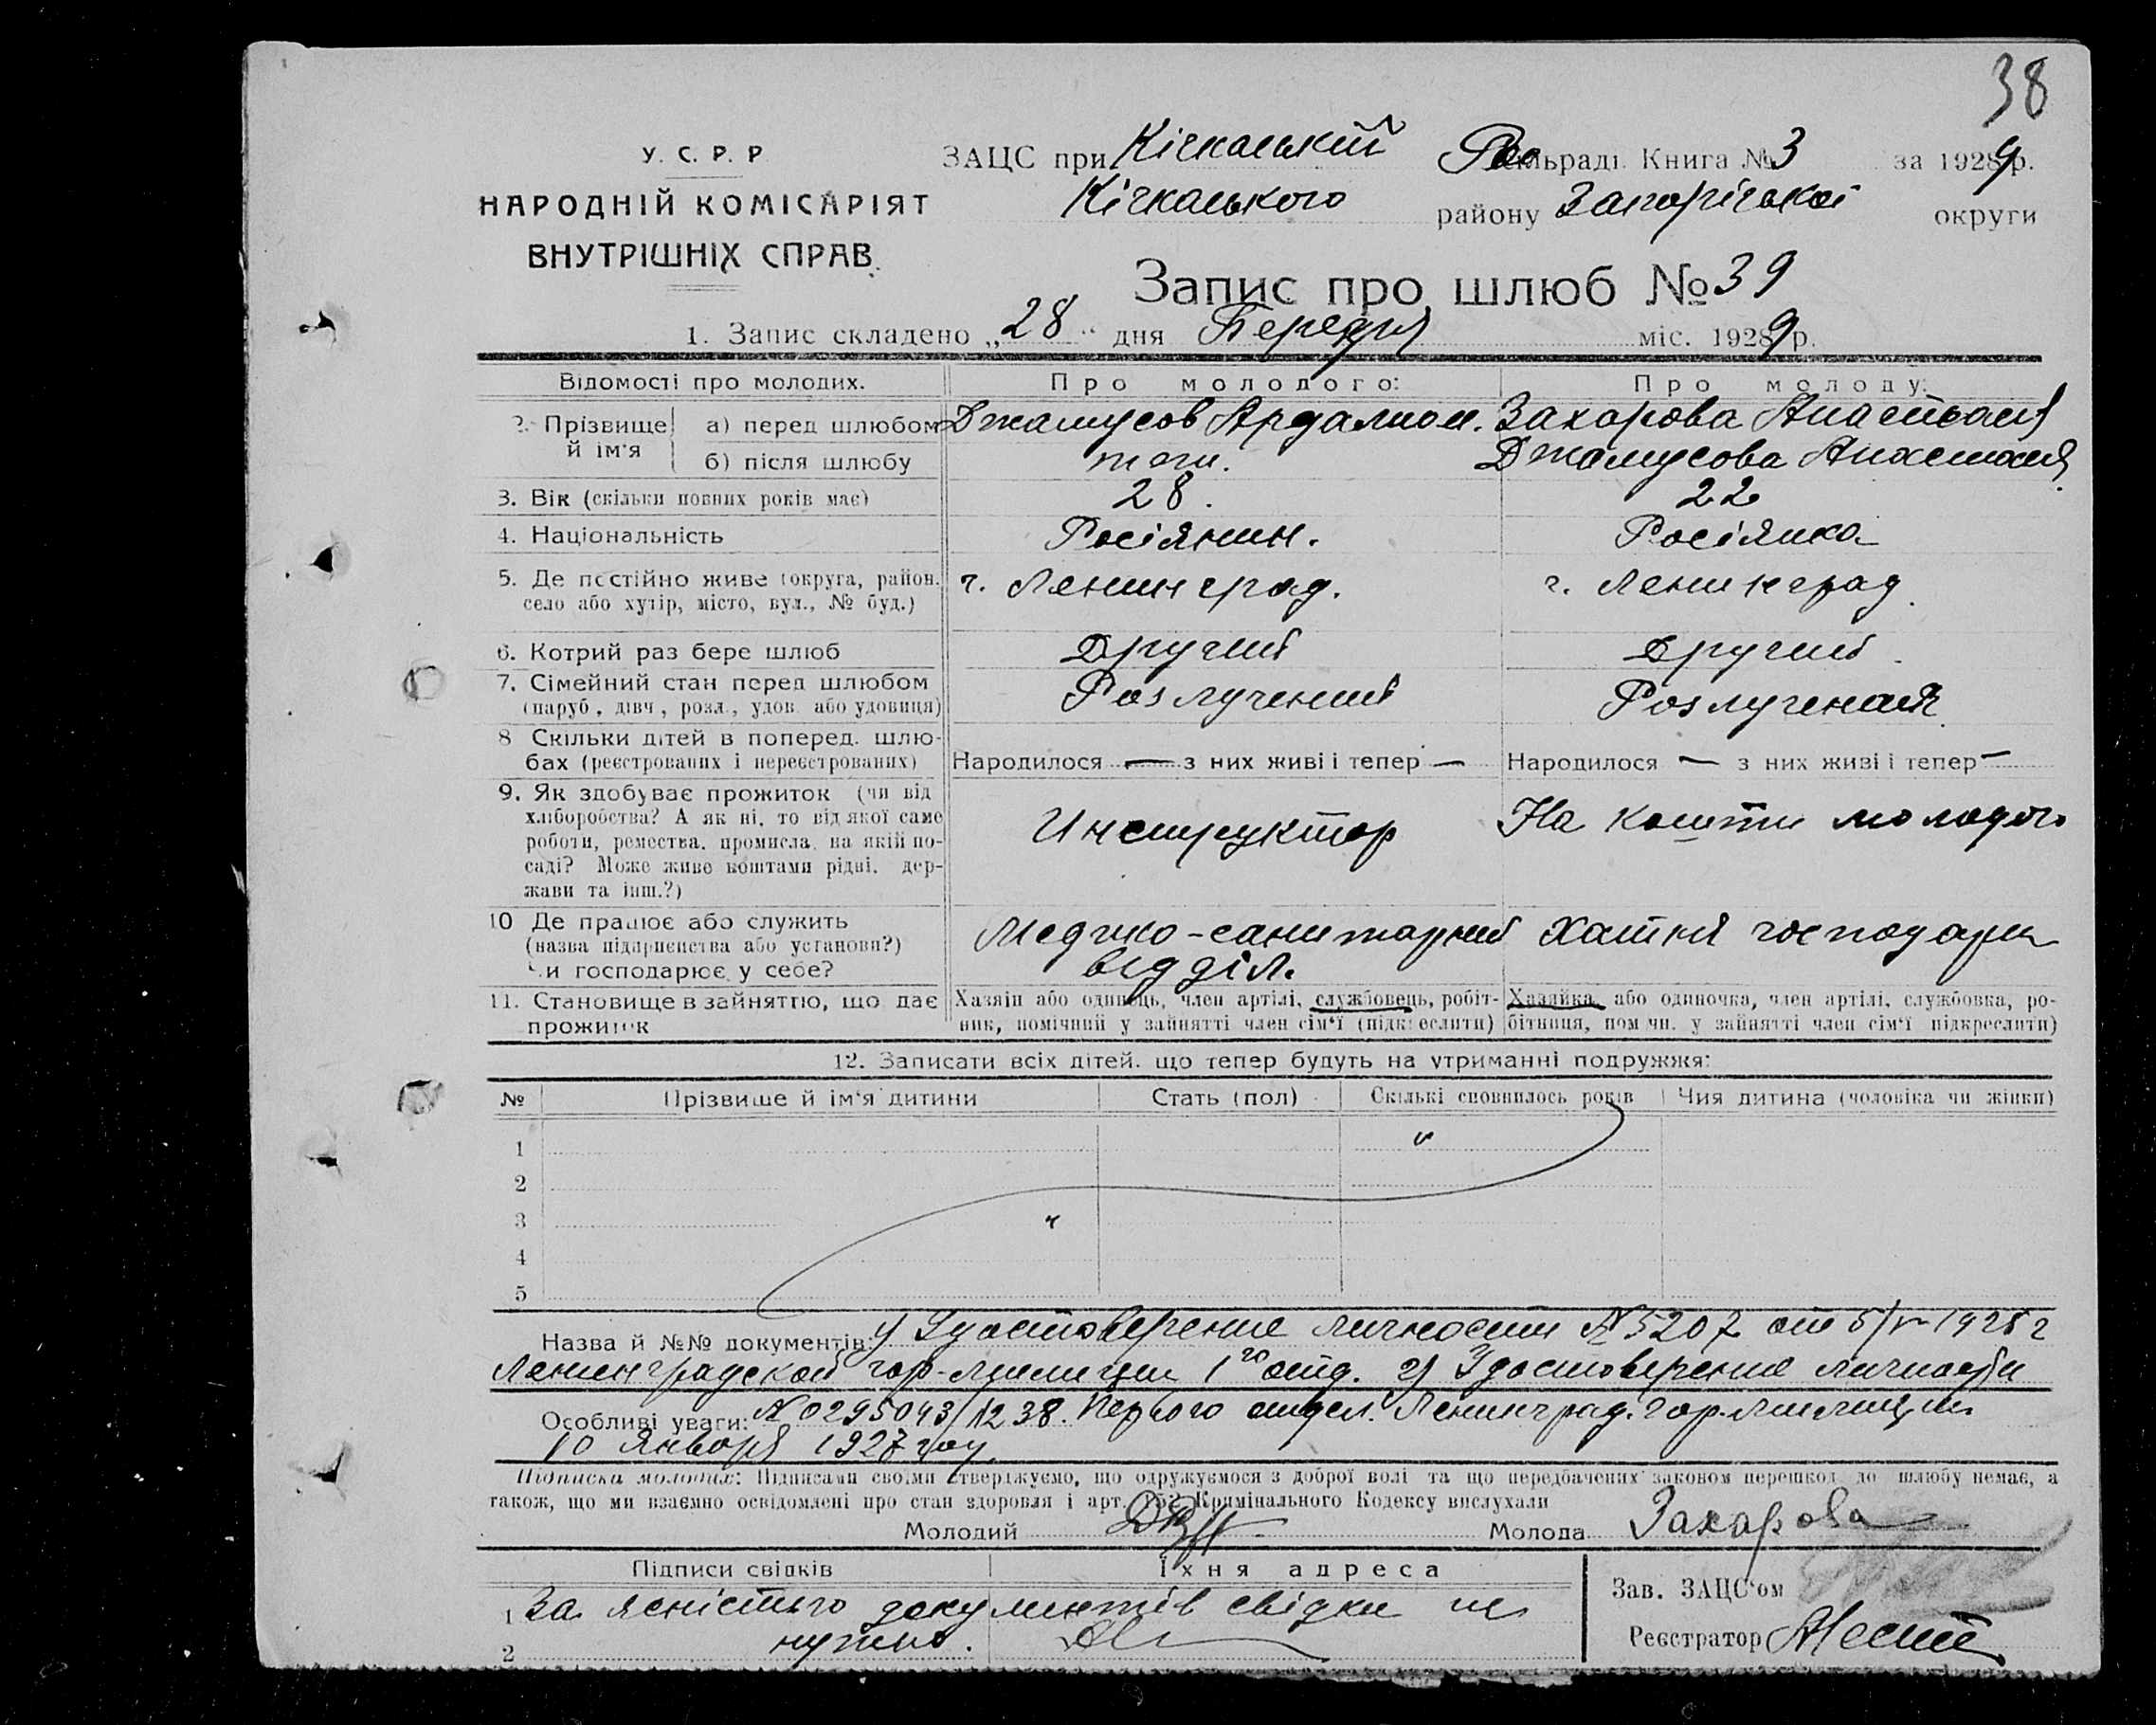 38
У. С. Р. Р
НАРОДНІЙ КОМІСАРІЯТ
ВНУТРІШНІХ СПРАВ.
ЗАЦС при Кічкаській сільраді. Книга № 3 за 1929 р.
Кічкаського району Запорізької округи
Запис про шлюб № 39
1. Запис складено „28“ дня Передня міс. 1929 р.
Відомості про молодих. Про молодого: Про молоду:
2. Прізвище й ім'я а) перед шлюбом Джамусов Ардалион. Захарова Анастасия
б) після шлюбу тоги. Джамусова Анастасия
3. Вік (скільки повних років має) 28. 22
4. Національність Росіянин. Росіянка
5. Де постійно живе (округа, район. г. Ленинград. г. Ленинград.
село або хутір, місто, вул., № буд.)
6. Котрий раз бере шлюб Другий Другий
7. Сімейний стан перед шлюбом Розлучений Розлученая
(паруб., дівч., розл., удов. або удовиця)
8 Скільки дітей в поперед. шлю-
бах (реєстрованих і нереєстрованих) Народилося — з них живі і тепер — Народилося — з них живі і тепер —
9. Як здобуває прожиток (чи від
хліборобства? А як ні, то від якої саме
роботи, ремества, промисла, на якій по-
саді? Може живе коштами рідні, дер-
жави та інш.?) Инструктор На кошти молодого
10 Де працює або служить
(назва підприємства або установи?)
Чи господарює у себе? Медико-санитарний відділ. Хатня господарка
11. Становище в зайняттю, що дає
прожиток
Хазяїн або одинець, член артілі, службовець, робіт-
ник, помічний у зайнятті член сім'ї (підкреслити)
Хазяйка або одиночка, член артілі, службовка, ро-
бітниця, помічн. у зайнятті член сім'ї підкреслити)
12. Записати всіх дітей, що тепер будуть на утриманні подружжя:
№ Прізвище й ім'я дитини Стать (пол) Скількі сповнилось років Чия дитина (чоловіка чи жінки)
1
2
3
4
5
Назва й №№ документів: 1) Удостоверение личности № 5207 от 5/V 1928 г
Ленинградской гор-милиции 1го отд. 2) Удостоверение личности
Особливі уваги: № 0295043/1238. Первого отдел. Ленинград. гор. милиции
10 Января 1927 году.
Підписка молодих: Підписами своїми стверджуємо, що одружуємося з доброї волі та що передбачених законом перешкод до шлюбу немає, а
також, що ми взаємно освідомлені про стан здоровля і арт. 152 Кримінального Кодексу вислухали
Молодий Молода Захарова
Підписи свідків Їхня адреса
1 За ясністью документів свідки не
2 нужно.
Зав. ЗАЦС'ом
Реєстратор